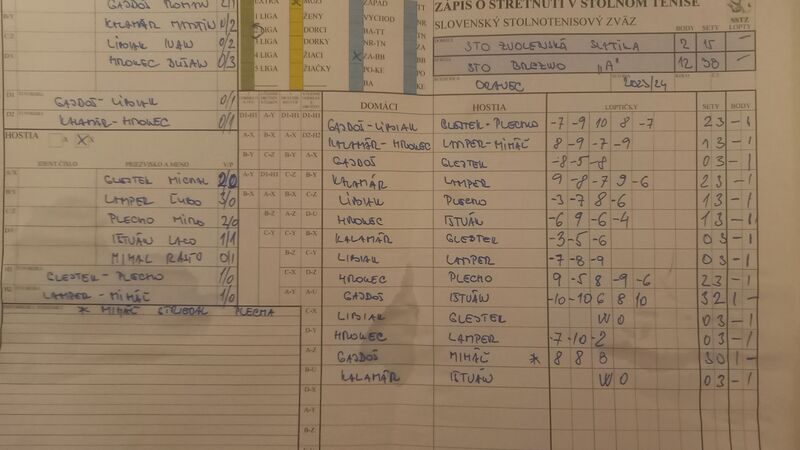 ZÁPIS O STRETNUTÍ V STOLNOM TENISE
SLOVENSKÝ STOLNOTENISOVÝ ZVÄZ
BODY SETY LOPTY
STO ZVOLENSKÁ SLATINA 2 15 –
STO BREZNO "A" 12 38 –
ORAVEC 2023/24
GAJDOŠ ROMAN 2/1
KALAMÁR MARTIN 0/2
LIPJAK IVAN 0/2
HRONEC DUŠAN 0/3
EXTRA
1 LIGA
2 LIGA
3 LIGA
4 LIGA
5 LIGA
MUŽI
ŽENY
DORCI
DORKY
ŽIACI
ŽIAČKY
ZÁPAD
VÝCHOD
BA-TT
NR-TN
ZA-BB
PO-KE
BA
D1 GAJDOŠ-LIPJAK 0/1
D2 KALAMÁR-HRONEC 0/1
HOSTIA A X
IDENT. ČÍSLO PRIEZVISKO A MENO V/P
A/X GLEJTEK MICHAL 2/0
B/Y LAMPER ĽUBO 3/0
C/Z PLECHO MIRO 2/0
IŠTVÁN LACO 1/1
MIHÁL RASŤO 0/1
GLEJTEK-PLECHO 1/0
LAMPER-MIHÁĽ 1/0
* MIHÁĽ STRIEDAL PLECHA
DOMÁCI HOSTIA LOPTIČKY SETY BODY
GAJDOŠ-LIPJAK GLEJTEK-PLECHO -7 -9 10 8 -7 2 3 – 1
KALAMÁR-HRONEC LAMPER-MIHÁĽ 8 -9 -7 -9 1 3 – 1
GAJDOŠ GLEJTEK -8 -5 -8 0 3 – 1
KALAMÁR LAMPER 9 -8 -7 9 -6 2 3 – 1
LIPJAK PLECHO -3 -7 8 -6 1 3 – 1
HRONEC IŠTVÁN -6 9 -6 -4 1 3 – 1
KALAMÁR GLEJTEK -3 -5 -6 0 3 – 1
LIPJAK LAMPER -7 -8 -9 0 3 – 1
HRONEC PLECHO 9 -5 8 -9 -6 2 3 – 1
GAJDOŠ IŠTVÁN -10 -10 6 8 10 3 2 1 –
LIPJAK GLEJTEK W O 0 3 – 1
HRONEC LAMPER -7 -10 -2 0 3 – 1
GAJDOŠ MIHÁĽ * 8 8 8 3 0 1 –
KALAMÁR IŠTVÁN W O 0 3 – 1